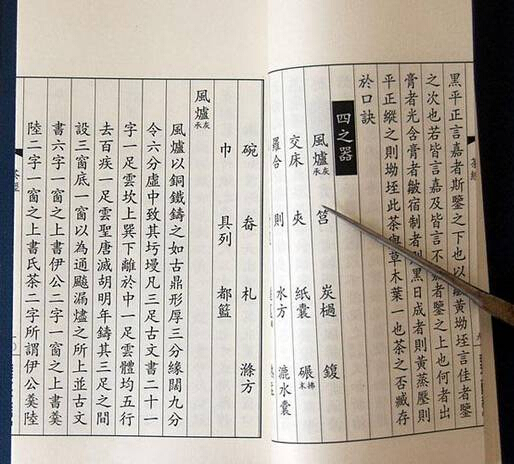 黑平正言嘉者斯鑒之下也以皺黃坳垤言佳者鑒
之次也若皆言嘉及皆言不嘉者鑒之上也何者出
膏者光含膏者皺宿制者則黑日成者則黃蒸壓則
平正縱之則坳垤此茶與草木葉一也茶之否臧存
於口訣
四之器
風爐灰承 筥 炭檛 鍑
交床 夾 紙囊 碾拂末
羅合 則 水方 漉水囊
碗 畚 札 滌方
巾 具列 都籃
風爐灰承
風爐以銅鐵鑄之如古鼎形厚三分緣闊九分
令六分虛中致其圬墁凡三足古文書二十一
字一足雲坎上巽下離於中一足雲體均五行
去百疾一足雲聖唐滅胡明年鑄其三足之間
設三窗底一窗以為通飈漏燼之所上並古文
書六字一窗之上書伊公二字一窗之上書羹
陸二字一窗之上書氏茶二字所謂伊公羹陸
茶經
茶經